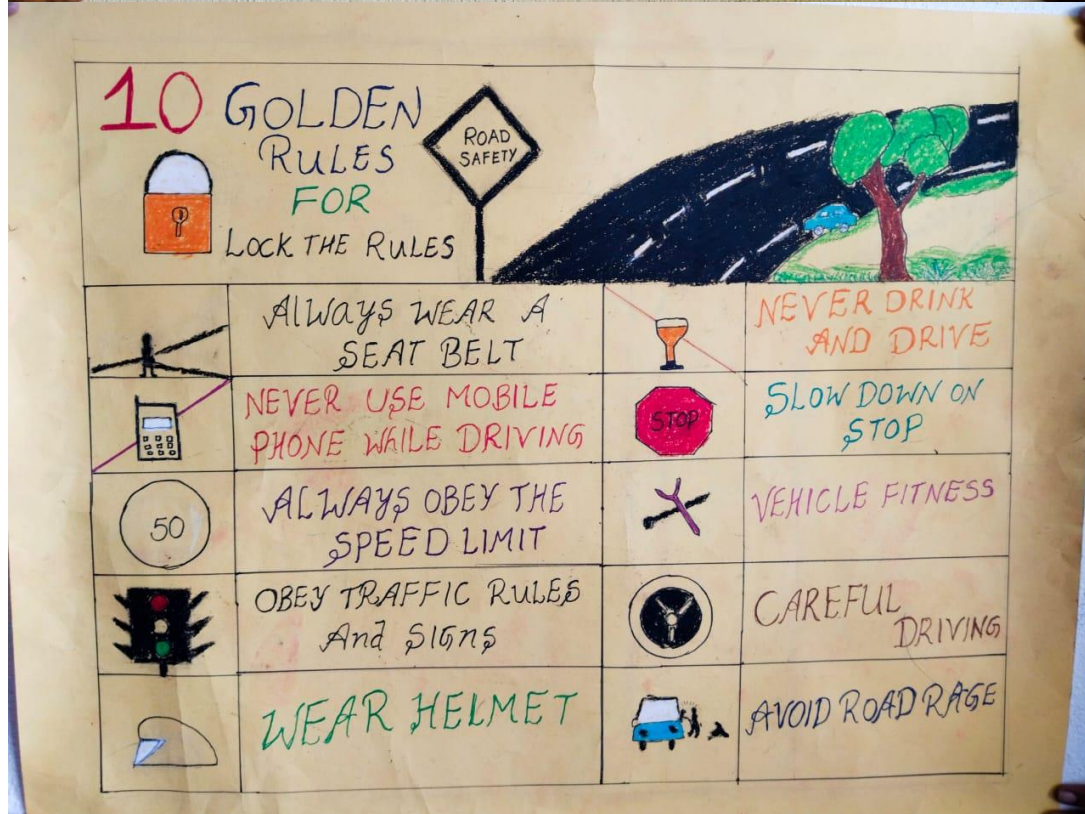 10 GOLDEN
RULES
FOR
LOCK THE RULES
ROAD
SAFETY
ALWayS WEAR A
SEAT BELT
NEVER DRINK
AND DRIVE
NEVER USE MOBILE
PHONE WHILE DRIVING
STOP
SLOW DOWN ON
STOP
50
ALWAYS OBEY THE
SPEED LIMIT
VEHICLE FITNESS
OBEY TRAFFIC RULES
And SIGnS
CAREFUL
DRIVING
WEAR HELMET
AVOID ROAD RAGE